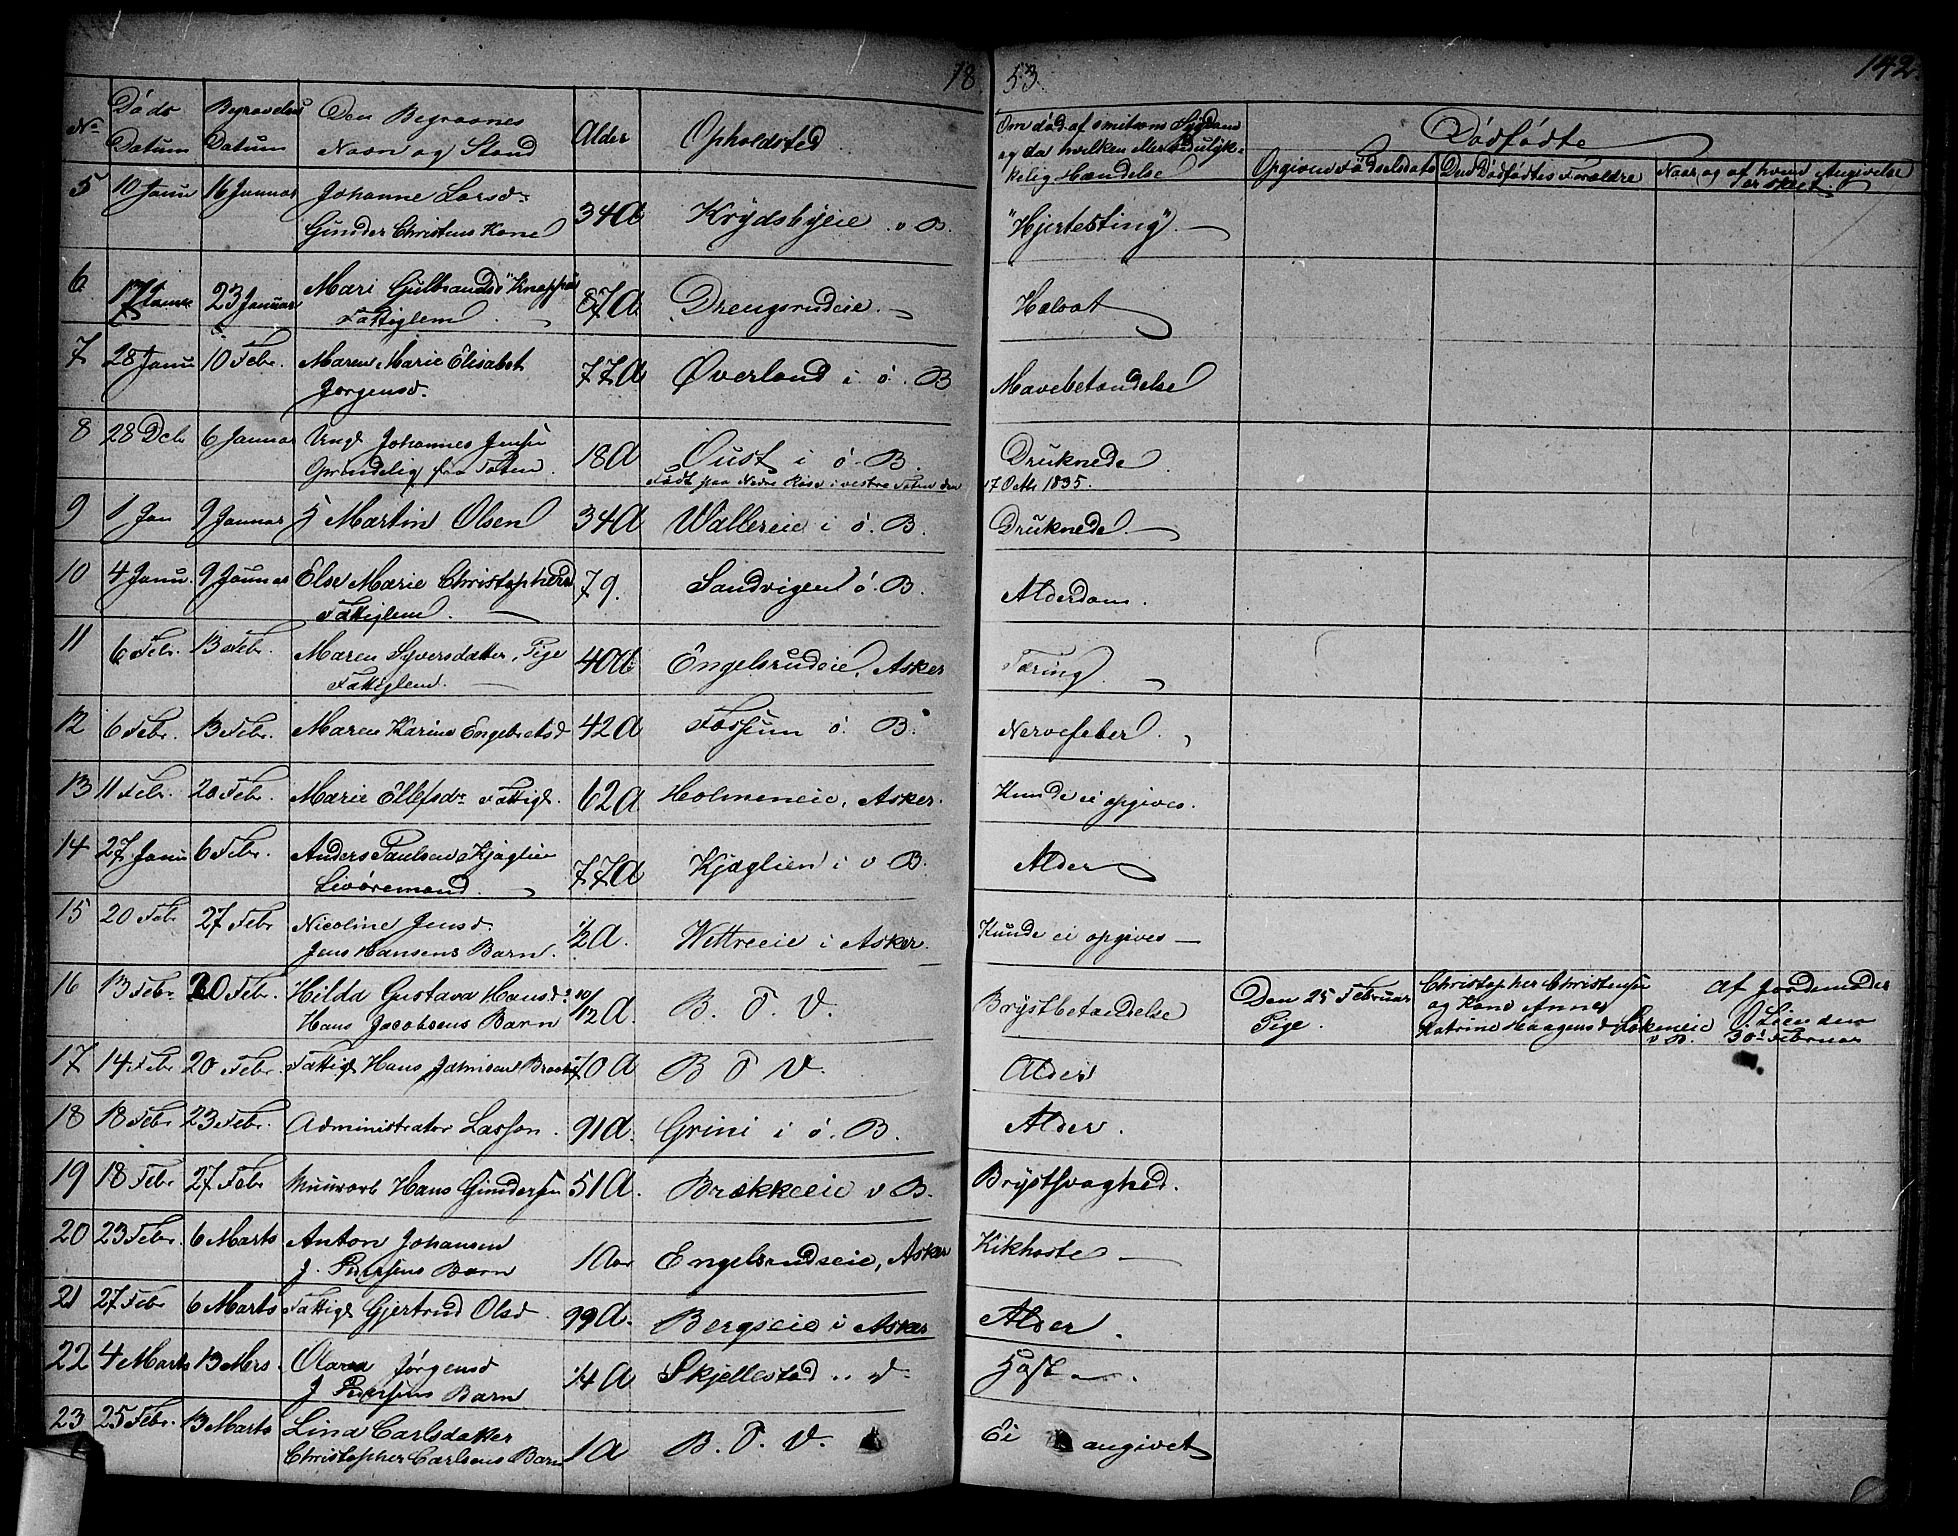 18 53.
142.
No
Døds Datum
Begravelses Datum
Den Begravnes Navn og Stand
Alder
Opholdsted
Om død af smitsom Sygdom og da hvilken eller ulyk- kelig Hændelse
Dødfødte
Opgiven Fødselsdato
Den Dødfødtes Forældre
Naar og af hvem Angivelse er skeet.
5 10 Janu 16 Januar Johanne Larsd. 34 A Krydsbyeie v B. "Hjertesting"
Gunder Christens Kone
6 17 Janu 23 Januar Mari Gulbrandsd. Knapp 87 A Drengsrudeie.
Fattiglem
7 28 Janu 10 Febr. Maren Marie Elisabet 77 A Øverland i ø. B Mavebetændelse
Jørgensd.
8 28 Dcb 6 Januar Ungk Johannes Jensen 18 A Oust i ø. B. Druknede
fra Toten. Født paa Nedre i vestre Toten den 17 Octb. 1835.
9 1 Jan 9 Januar Martin Olsen 34 A Wallereie i ø. B. Druknede.
10 4 Janu. 9 Januar Else Marie Christophersd 79. Sandvigen ø. B. Alderdom.
Fattiglem.
11 6 Febr. 13 Febr. Maren Syversdatter, Pige 40 A Engelsrudeie, Asker Tæring.
Fattiglem.
12 6 Febr. 13 Febr. Maren Karine Engebretsd 42 A Fossum ø. B. Nervefeber.
13 11 Febr. 20 Febr. Marie Ellefsdr Fattigl. 62 A Holmeneie, Asker. Kunde ei opgives.
14 27 Janu 6 Febr. Anders Paulsen Kjaglien 77 A Kjaglien i v B. Alder
Livøremand.
15 20 Febr 27 Febr Nicoline Jensd. ½ A. Wettreeie i Asker. Kunde ei opgives —
Jens Hansens Barn.
16 13 Febr. 20 Febr. Hilda Gustava Hansd. 10/12 A. B. T. V. Brystbetændelse Den 25 Februar Christopher Christensen Af Jordemoder
Hans Jacobsens Barn Pige. og Kone Anne Lien den
Katrine Haagensd Løkeneie v B. 30 Februar
17 14 Febr 20 Febr. Fattigl Hans 70 A B T V. Alder
18 18 Febr 23 Febr. Administrator Lasson. 91 A. Grini i ø. B. Alder.
19 18 Febr 27 Febr Muurarb Hans Gundersen 51 A. Brækkeeie v B. Brystsvaghed.
20 23 Febr. 6 Marts Anton Johansen 1 Aar Engelsrudseie, Asker Kikhoste —
J. Pedersens Barn
21 27 Febr 6 Marts Fattigl Gjertrud Olsd 99 A. Bergseie i Asker Alder.
22 4 Marts 13 Mrs. Olava Jørgensd ¼ A Skjellestad
J Pedersens Barn
23 25 Febr. 13 Marts Lina Carlsdatter 1 A B. T. V. Ei angivet
Christopher Carlsens Barn